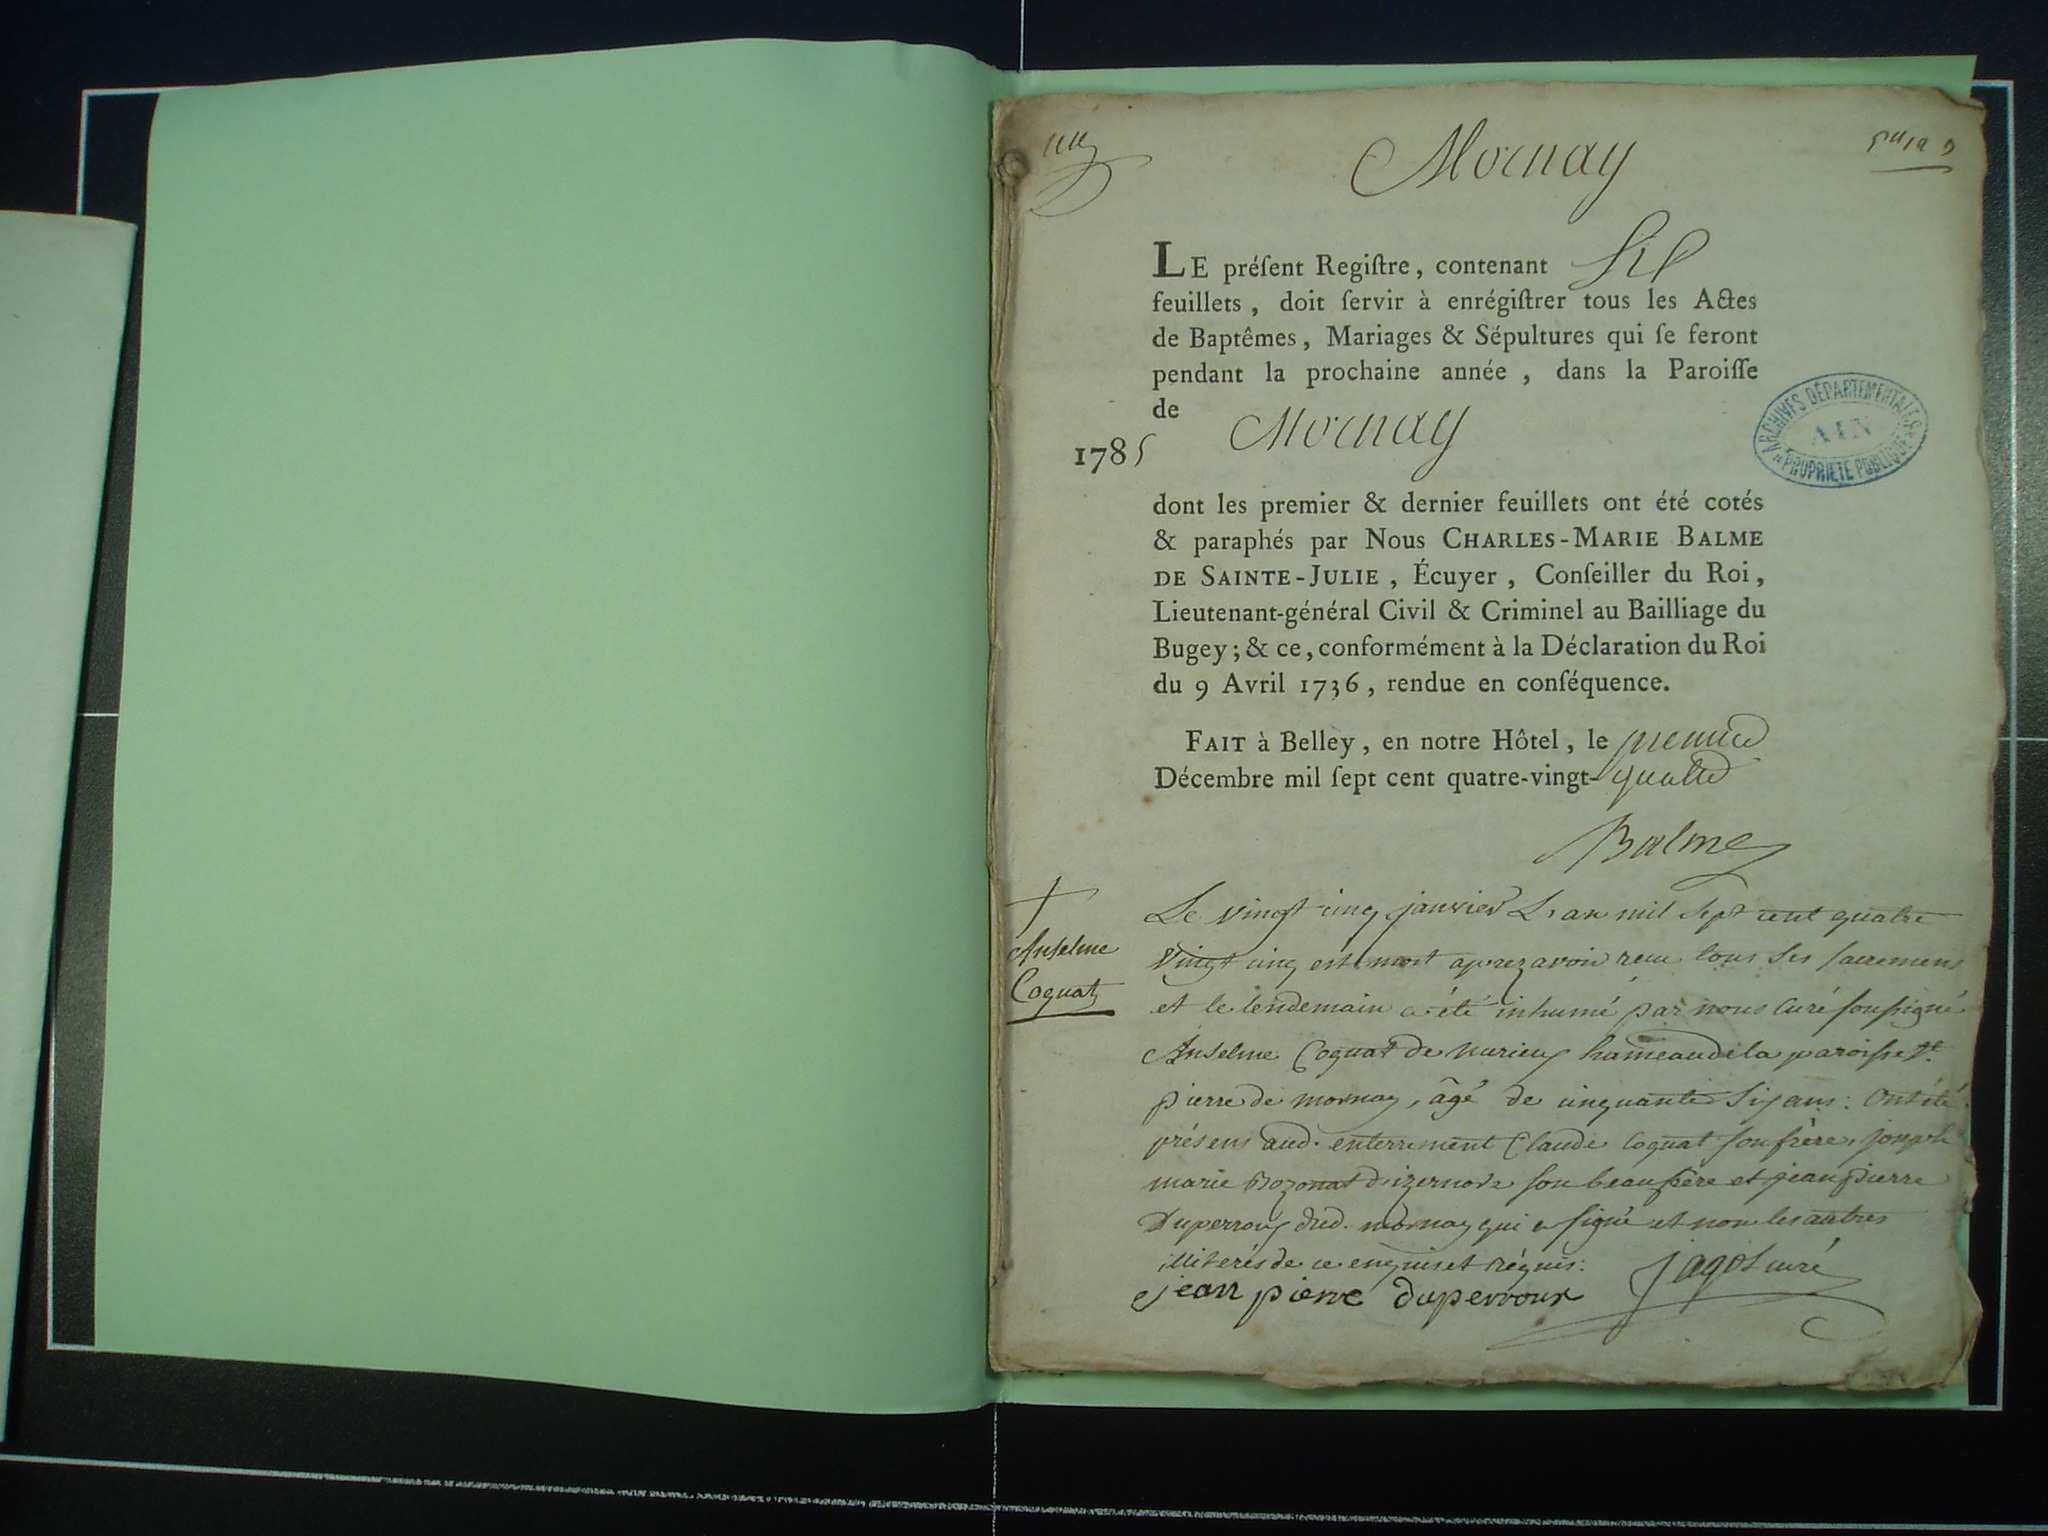 Mornay
LE préſent Regiſtre, contenant Six
feuillets, doit ſervir à enrégiſtrer tous les Actes
de Baptêmes, Mariages & Sépultures qui ſe feront
pendant la prochaine année, dans la Paroiſſe
de Mornay
1785
ARCHIVES DÉPARTEMENTALES
AIN
PROPRIÉTÉ PUBLIQUE
dont les premier & dernier feuillets ont été cotés
& paraphés par Nous CHARLES-MARIE BALME
DE SAINTE-JULIE, Écuyer, Conſeiller du Roi,
Lieutenant-général Civil & Criminel au Bailliage du
Bugey; & ce, conformément à la Déclaration du Roi
du 9 Avril 1736, rendue en conſéquence.
FAIT à Belley, en notre Hôtel, le premier
Décembre mil ſept cent quatre-vingt-quatre
Balme
Anselme
Coquat
Le vingt cinq janvier L'an mil sept cent quatre
vingt cinq est mort aprez avoir recu tous ses sacremens
et le lendemain a été inhumé par nous curé soussigné
Anselme Coquat de nurieux hameau de la paroisse St.
pierre de mornay, âgé de cinquante six ans: Ont été
présens aud. enterrement Claude Coquat son frère, joseph
marie Bozonat d'izernore son beaufrère et jean pierre
Duperroux dud. mornay qui a signé et non les autres
illiterés de ce enquis et réquis:
jean pierre duperroux
jagot curé